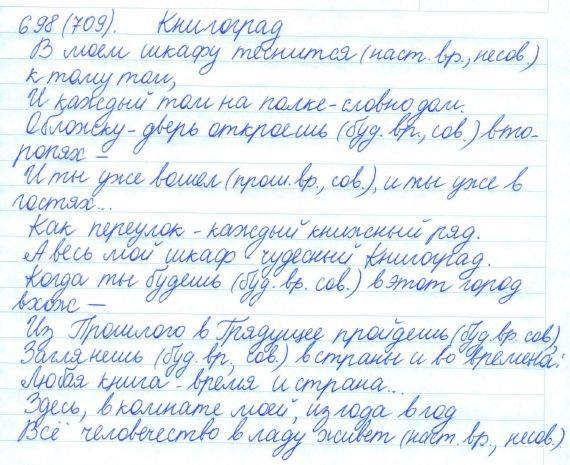 698(709). Книгоград
В моем шкафу теснится (наст.вр., несов.)
к тому том,
И каждый том на полке-словно дом.
Обложку-дверь откроешь (буд.вр., сов.) вто-
ропях –
И ты уже вошел (прош.вр., сов.), и ты уже в
гостях...
Как переулок - каждый книжный ряд.
А весь мой шкаф - чудесный Книгоград.
Когда ты будешь (буд.вр. сов.) в этот город
вхож –
Из Прошлого в Грядущее пройдешь (буд.вр. сов)
Заглянешь (буд.вр, сов) в страны и во времена:
Любая книга - время и страна...
Здесь, в комнате моей, из года в год
Всё человечество в ладу живет (наст.вр., несов.)